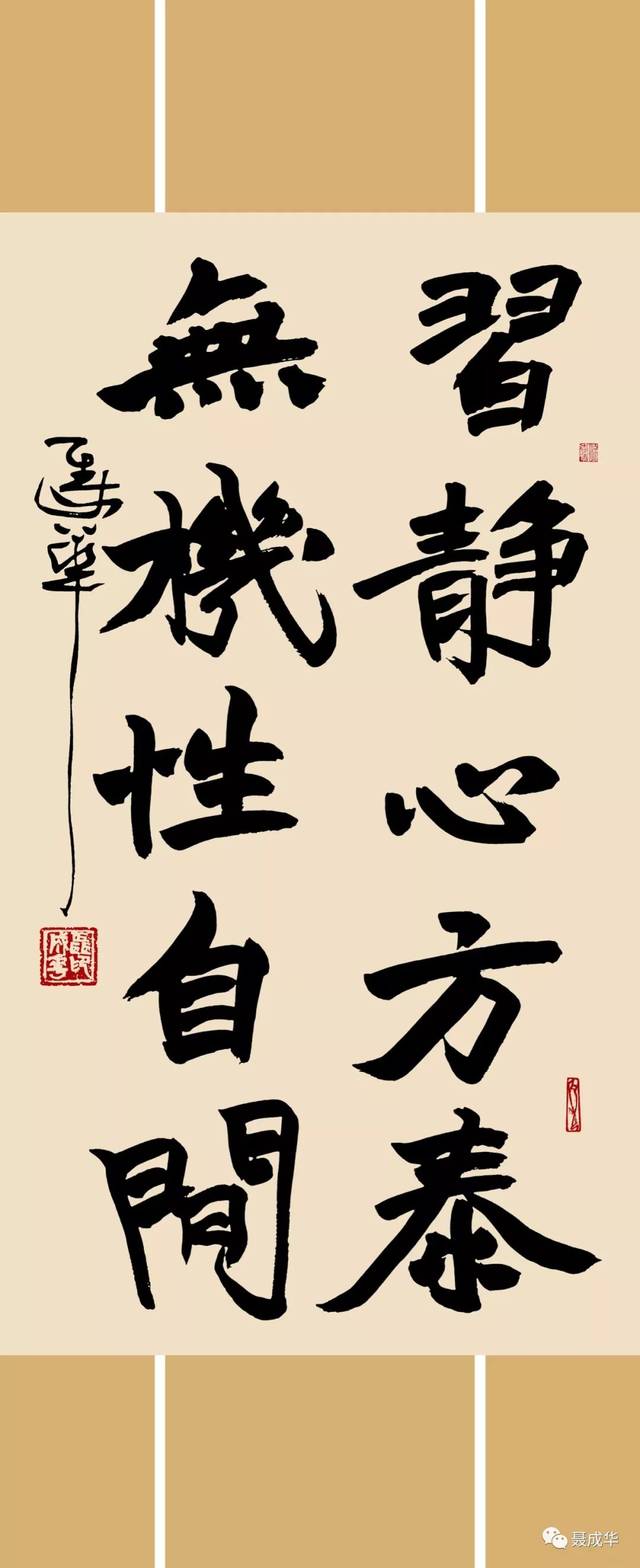 習靜心方泰
無機性自間
聂成华